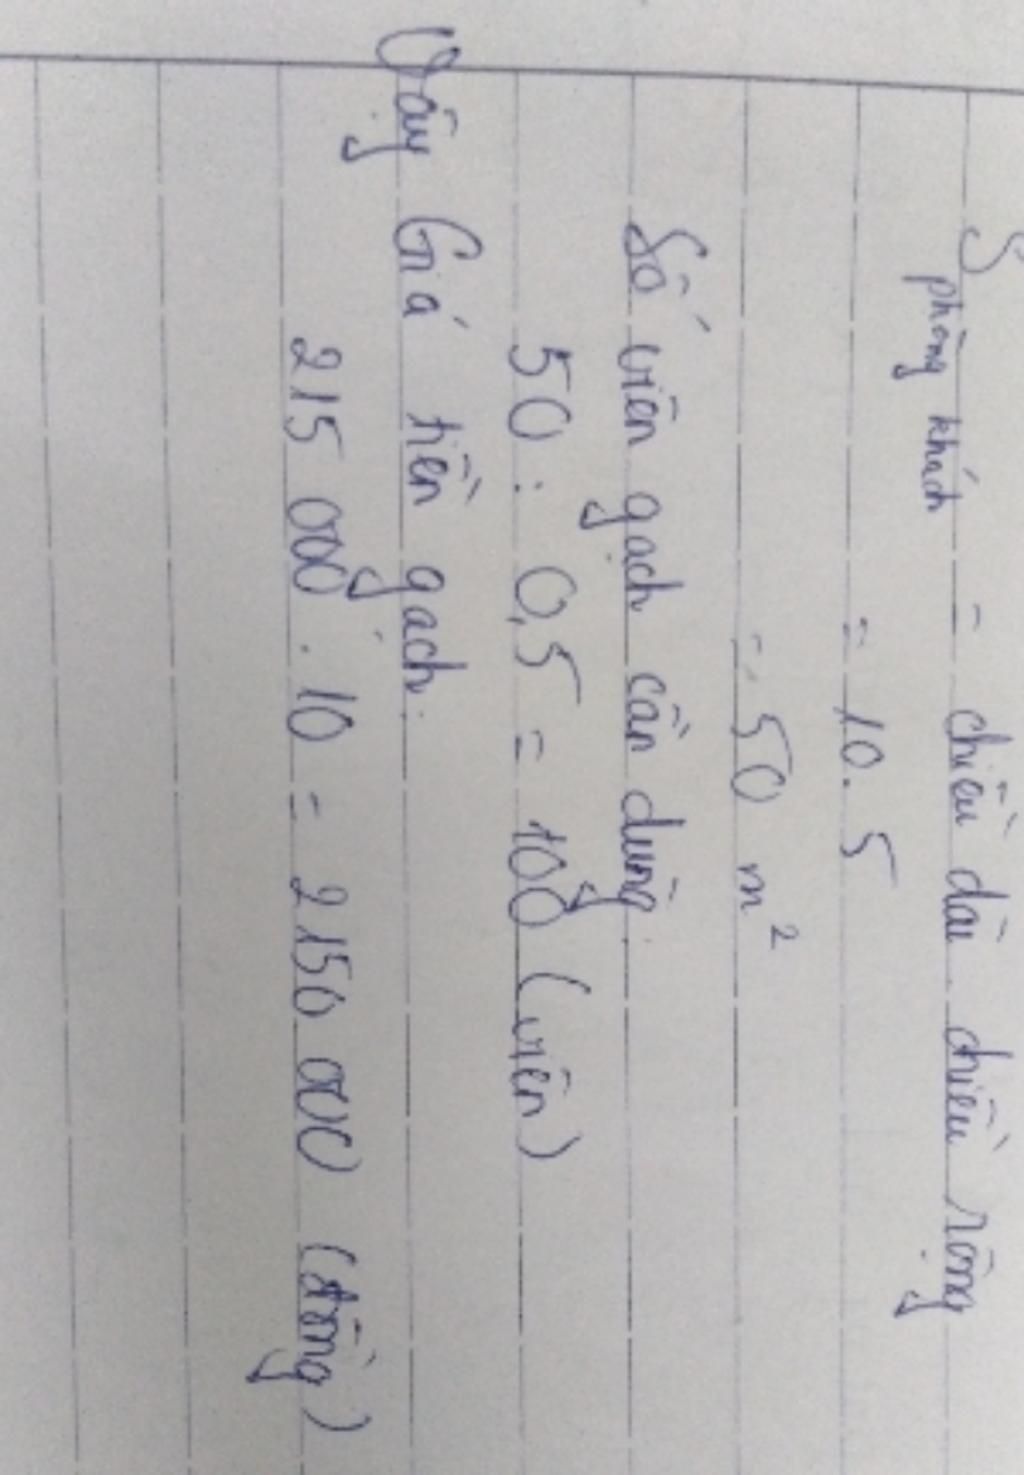 S phòng khách = chiều dài . chiều rộng
= 10 . 5
= 50 m²
Số viên gạch cần dùng:
50 : 0,5 = 100 (viên)
Vậy Giá tiền gạch:
215 000 . 10 = 2 150 000 (đồng)